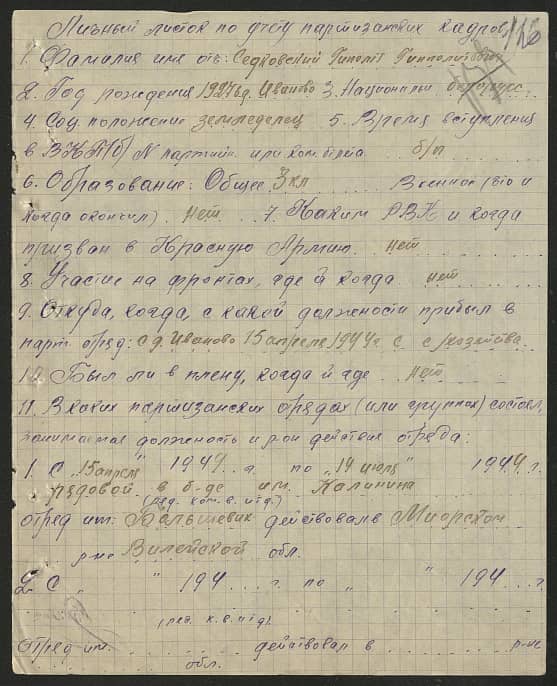 Личный листок по учету партизанских кадров
1. Фамилия имя отч. Седковский Гиполит Гипполитович
2. Год рождения 1927 г д. Иваново 3. Национальн белорусс
4. Соц положение земледелец 5. Время вступления
в ВКП(б) N партийн. или ком. билета б/п
6. Образование: Общее 3 кл Военное (что и
когда окончил) нет 7. Каким РВК и когда
призван в Красную Армию нет
8. Участие на фронтах, где и когда нет
9. Откуда, когда, с какой должности прибыл в
парт отряд: с д. Иваново 15 апреля 1944 г с с/хозяйства
10. Был ли в плену, когда и где нет
11. В каких партизанских отрядах (или группах) состоял,
занимаемая должность и действия отряда:
1. С "15 апреля" 1944 г. по "14 июля" 1944 г.
рядовой в б-де им. Калинина
(ряд. ком. в. и т.д.)
отряд им. Большевик действовал в Миорском
р-не Вилейской обл.
2. С " " 194... г. по " " 194... г.
(ряд. к. в. и т.д.)
отряд им. действовал в р-не
обл.